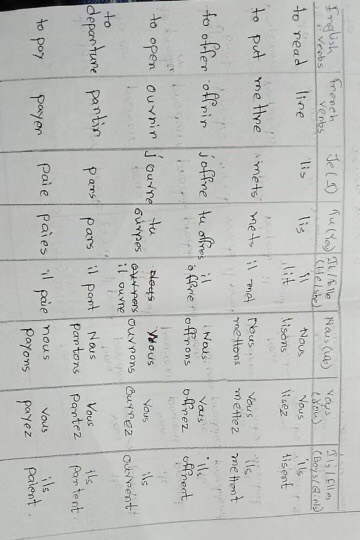 English verbs French verbs Je (I) Tu (You) Il/Elle (He/she) Nous (We) Vous (You) Ils/Elles (Boys/Girls)
to read lire lis lis il lit Nous lisons Vous lisez ils lisent
to put mettre mets mets il met Nous mettons Vous mettez ils mettent
to offer offrir j offre tu offres il offre Nous offrons Vous offrez ils offrent
to open ouvrir j ouvre tu ouvres il ouvre Nous ouvrons Vous ouvrez ils ouvrent
to departure partir pars pars il part Nous partons Vous partez ils partent
to pay payer paie paies il paie nous payons vous payez ils paient